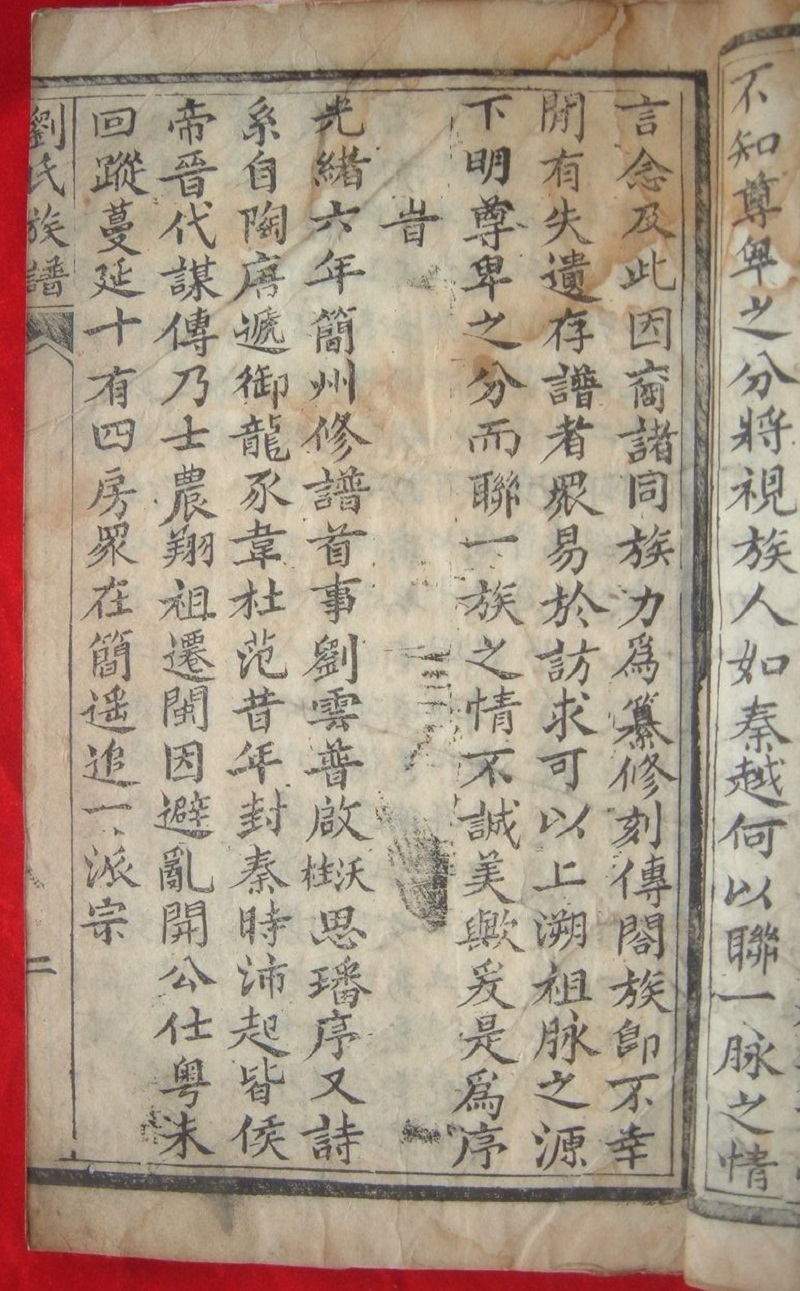 不知尊卑之分將視族人如秦越何以聯一脉之情
言念及此因商諸同族力爲纂修刻傳閤族卽不幸
間有失遺存譜者眾易於訪求可以上溯祖脉之源
下明尊卑之分而聯一族之情不誠美歟爰是爲序
旹
光緒六年簡州修譜首事劉雲普啟沃桂思璠序又詩
系自陶唐遞御龍豕韋杜范昔年封秦時沛起皆侯
帝晉代謀傳乃士農翔祖遷閩因避亂開公仕粵未
回蹤蔓延十有四房眾在簡遥追一派宗
劉氏族譜
二